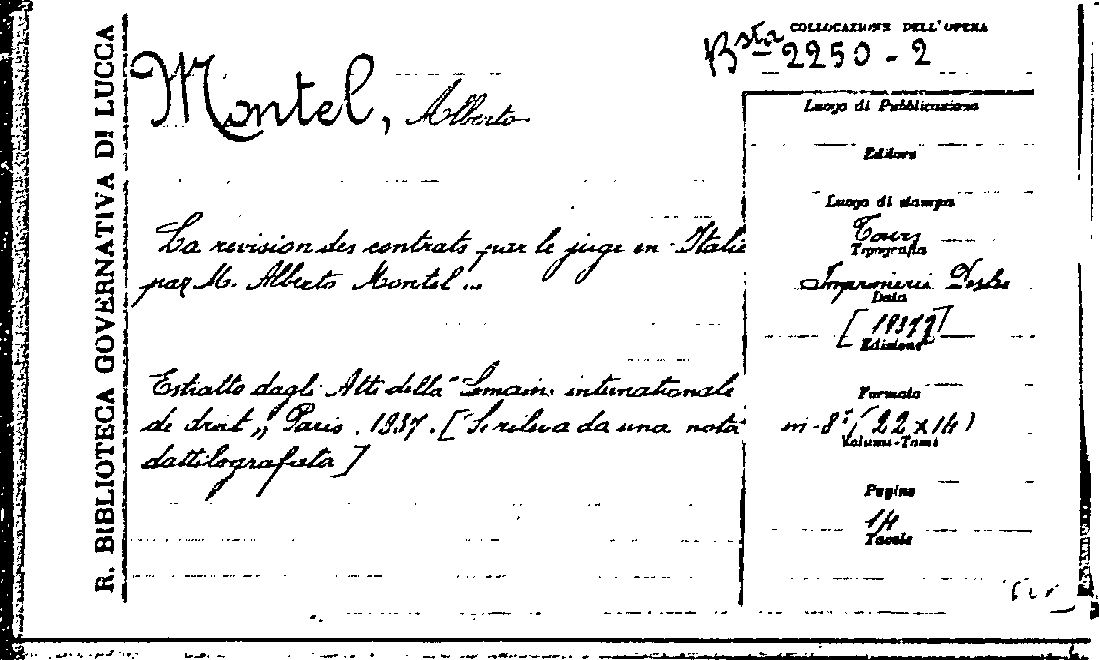 R. BIBLIOTECA GOVERNATIVA DI LUCCA
COLLOCAZIONE DELL'OPERA
Bsta 2250-2
Montel, Alberto
La revision des contrats par le juge en Italie
par M. Alberto Montel...
Estratto dagli Atti della "Semain. internationale
de droit" Paris. 1937. [Si rileva da una nota
dattilografata]
Luogo di Pubblicazione
Editore
Luogo di stampa
Tours
Tipografia
Data
[1937]
Edizione
Formato
in-8° (22x14)
Volumi-Tomi
Pagine
14
Tavole